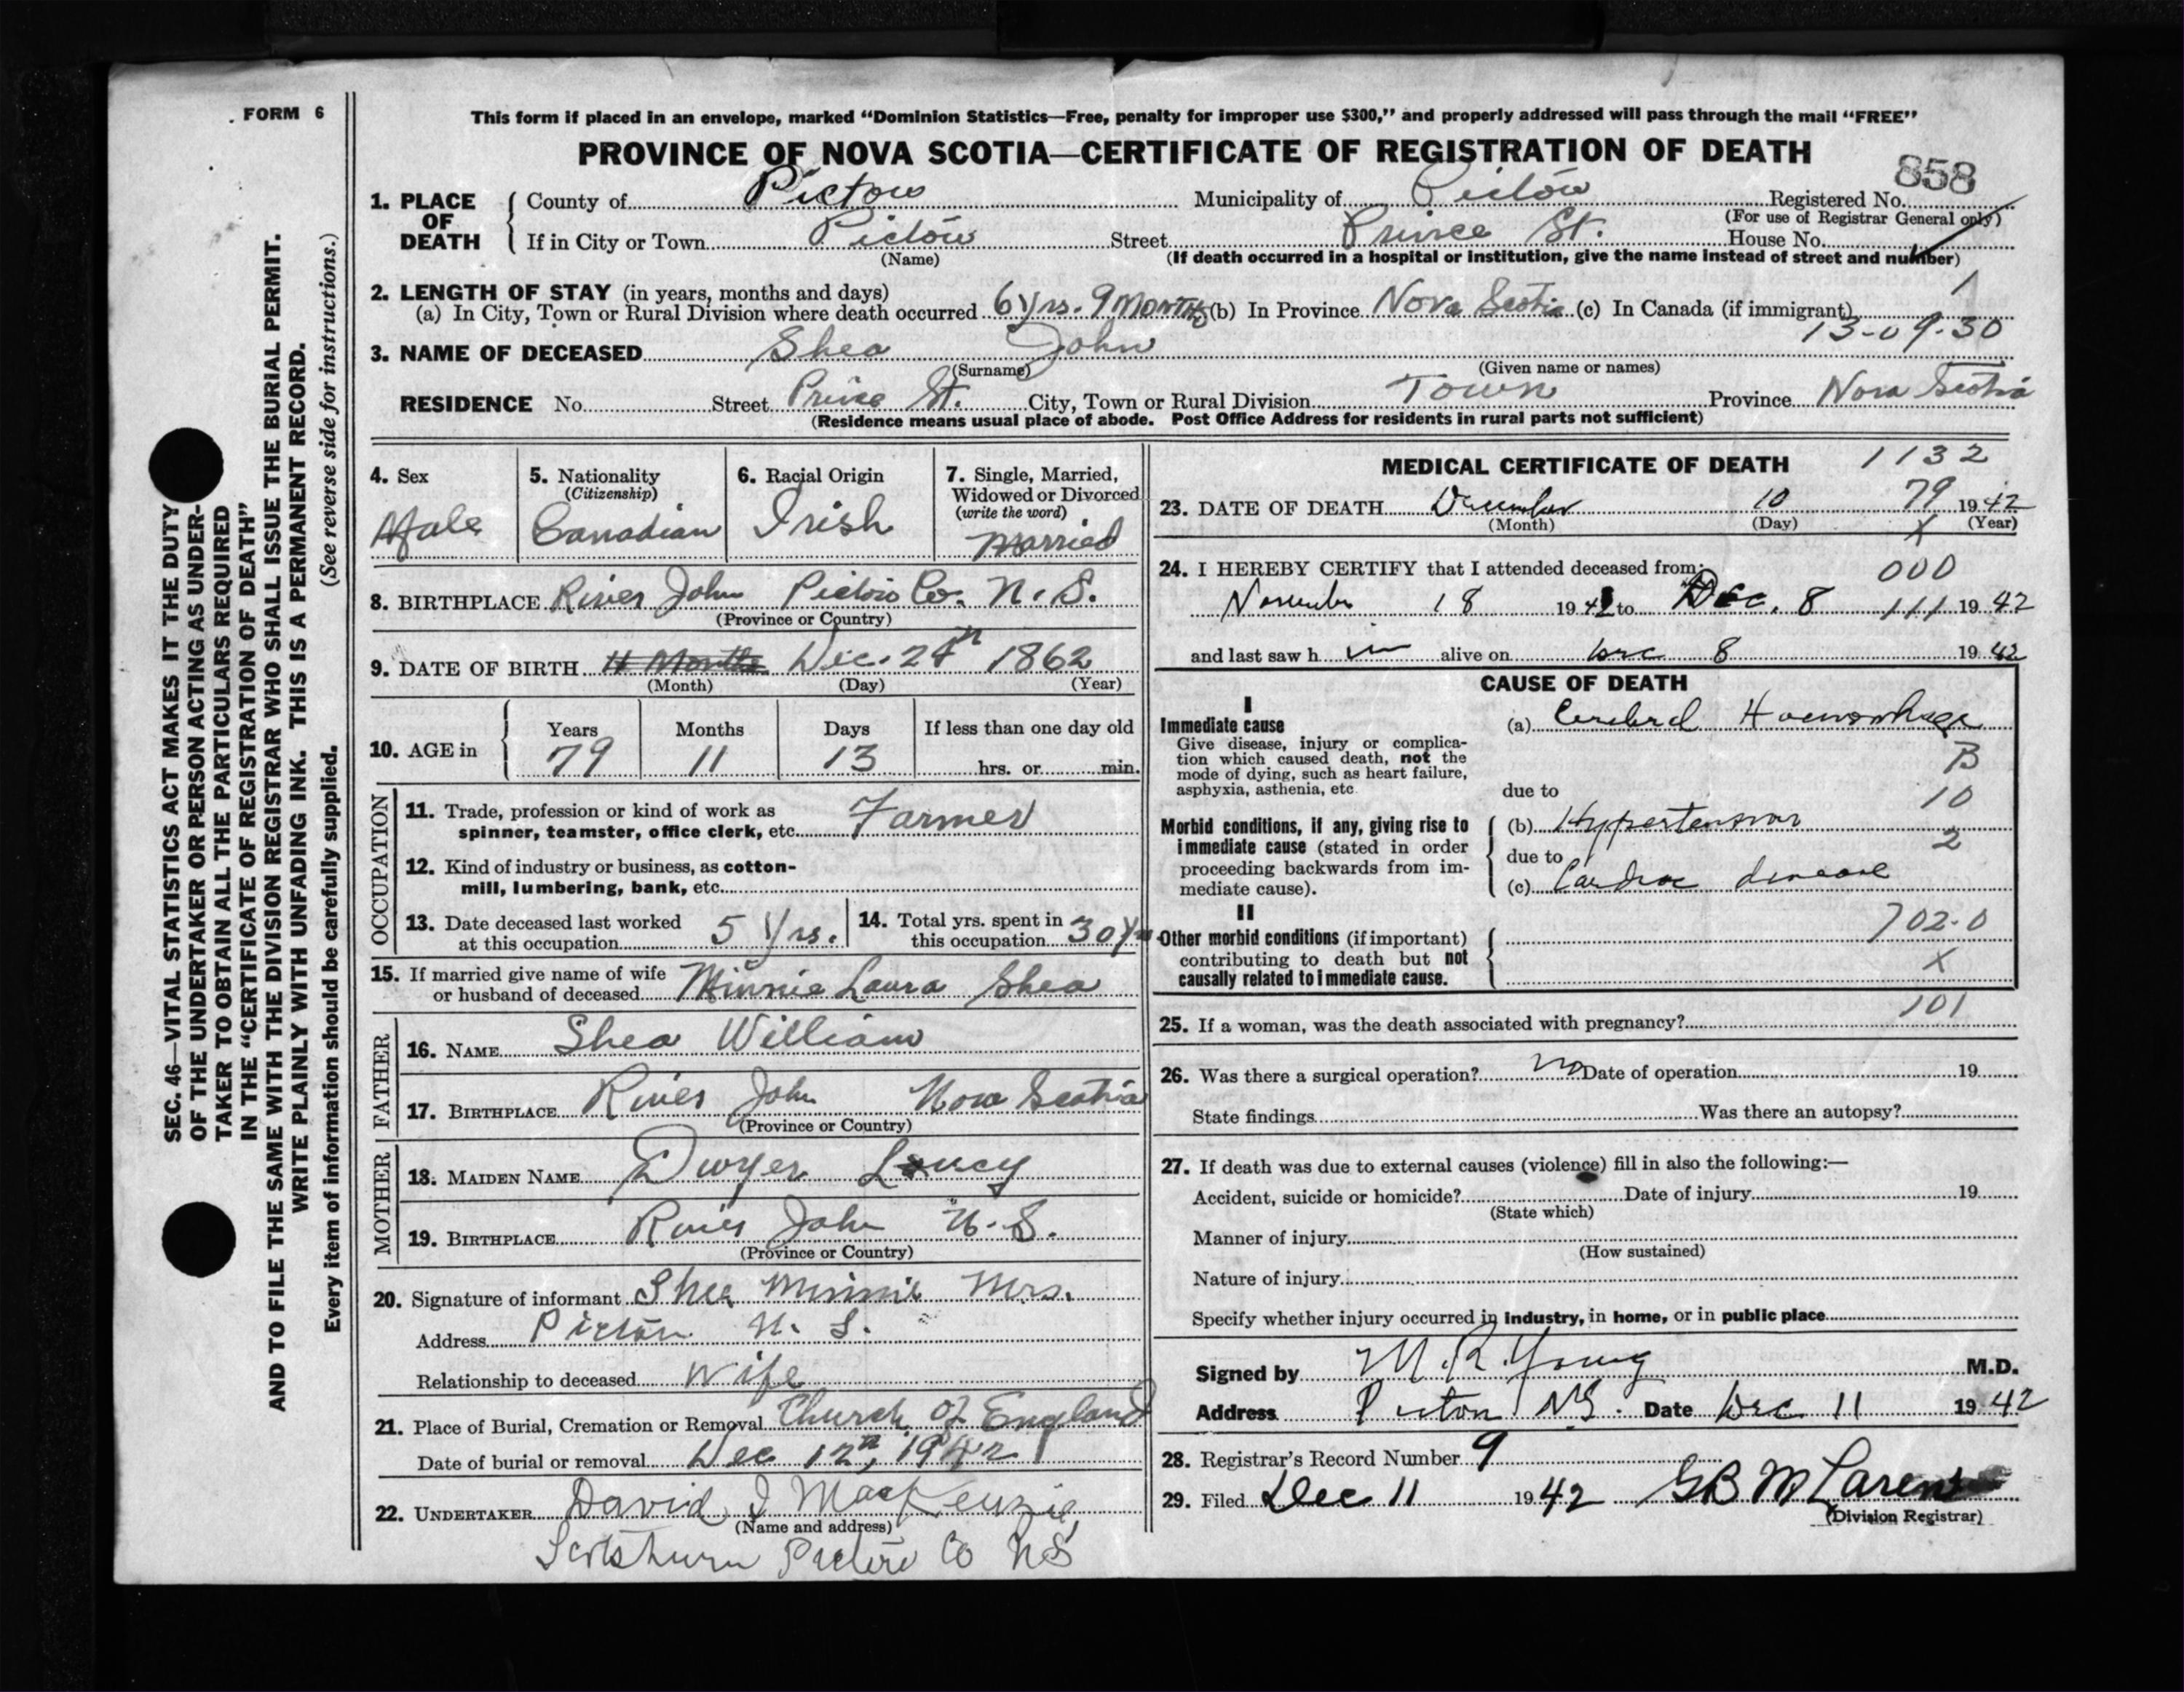 FORM 6
This form if placed in an envelope, marked "Dominion Statistics—Free, penalty for improper use $300," and properly addressed will pass through the mail "FREE"
PROVINCE OF NOVA SCOTIA—CERTIFICATE OF REGISTRATION OF DEATH
858
1. PLACE OF DEATH
County of Pictou Municipality of Pictou Registered No.
(For use of Registrar General only)
If in City or Town Pictou Street Prince St. House No.
(Name) (If death occurred in a hospital or institution, give the name instead of street and number)
2. LENGTH OF STAY (in years, months and days)
(a) In City, Town or Rural Division where death occurred 6 yrs. 9 Months (b) In Province Nova Scotia (c) In Canada (if immigrant)
1
13-09-30
3. NAME OF DECEASED Shea John
(Surname) (Given name or names)
RESIDENCE No. Street Prince St. City, Town or Rural Division Town Province Nova Scotia
(Residence means usual place of abode. Post Office Address for residents in rural parts not sufficient)
4. Sex
Male
5. Nationality
(Citizenship)
Canadian
6. Racial Origin
Irish
7. Single, Married,
Widowed or Divorced
(write the word)
Married
8. BIRTHPLACE River John Pictou Co. N.S.
(Province or Country)
9. DATE OF BIRTH 11 Months Dec. 24th 1862
(Month) (Day) (Year)
10. AGE in
Years Months Days If less than one day old
79 11 13 hrs. or min.
OCCUPATION
11. Trade, profession or kind of work as
spinner, teamster, office clerk, etc. Farmer
12. Kind of industry or business, as cotton-
mill, lumbering, bank, etc.
13. Date deceased last worked
at this occupation 5 yrs.
14. Total yrs. spent in
this occupation 30 yrs
15. If married give name of wife
or husband of deceased Minnie Laura Shea
FATHER
16. NAME Shea William
17. BIRTHPLACE River John Nova Scotia
(Province or Country)
MOTHER
18. MAIDEN NAME Dwyer Lucy
19. BIRTHPLACE River John N.S.
(Province or Country)
20. Signature of informant Shea Minnie Mrs.
Address Pictou N. S.
Relationship to deceased Wife
21. Place of Burial, Cremation or Removal Church of England
Date of burial or removal Dec 12th, 1942
22. UNDERTAKER David J MacKenzie
(Name and address)
Scotsburn Pictou Co NS
MEDICAL CERTIFICATE OF DEATH 1132
23. DATE OF DEATH December 10 79 1942
(Month) (Day) X (Year)
24. I HEREBY CERTIFY that I attended deceased from: 000
November 18 1942 to Dec. 8 111 1942
and last saw h im alive on Dec 8 1942
CAUSE OF DEATH
I
Immediate cause
Give disease, injury or complica-
tion which caused death, not the
mode of dying, such as heart failure,
asphyxia, asthenia, etc
(a) Cerebral Haemorrhage
B
due to
10
Morbid conditions, if any, giving rise to
immediate cause (stated in order
proceeding backwards from im-
mediate cause).
(b) Hypertension
2
due to
(c) Cardiac disease
II
Other morbid conditions (if important)
contributing to death but not
causally related to immediate cause.
702-0
X
101
25. If a woman, was the death associated with pregnancy?
26. Was there a surgical operation? No Date of operation 19
State findings Was there an autopsy?
27. If death was due to external causes (violence) fill in also the following:—
Accident, suicide or homicide? Date of injury 19
(State which)
Manner of injury
(How sustained)
Nature of injury
Specify whether injury occurred in industry, in home, or in public place
Signed by M. R. Young M.D.
Address Pictou NS. Date Dec 11 1942
28. Registrar's Record Number 9
29. Filed Dec 11 1942 GB McLaren
(Division Registrar)
SEC. 46—VITAL STATISTICS ACT MAKES IT THE DUTY
OF THE UNDERTAKER OR PERSON ACTING AS UNDER-
TAKER TO OBTAIN ALL THE PARTICULARS REQUIRED
IN THE "CERTIFICATE OF REGISTRATION OF DEATH"
AND TO FILE THE SAME WITH THE DIVISION REGISTRAR WHO SHALL ISSUE THE BURIAL PERMIT.
WRITE PLAINLY WITH UNFADING INK. THIS IS A PERMANENT RECORD.
Every item of information should be carefully supplied. (See reverse side for instructions.)